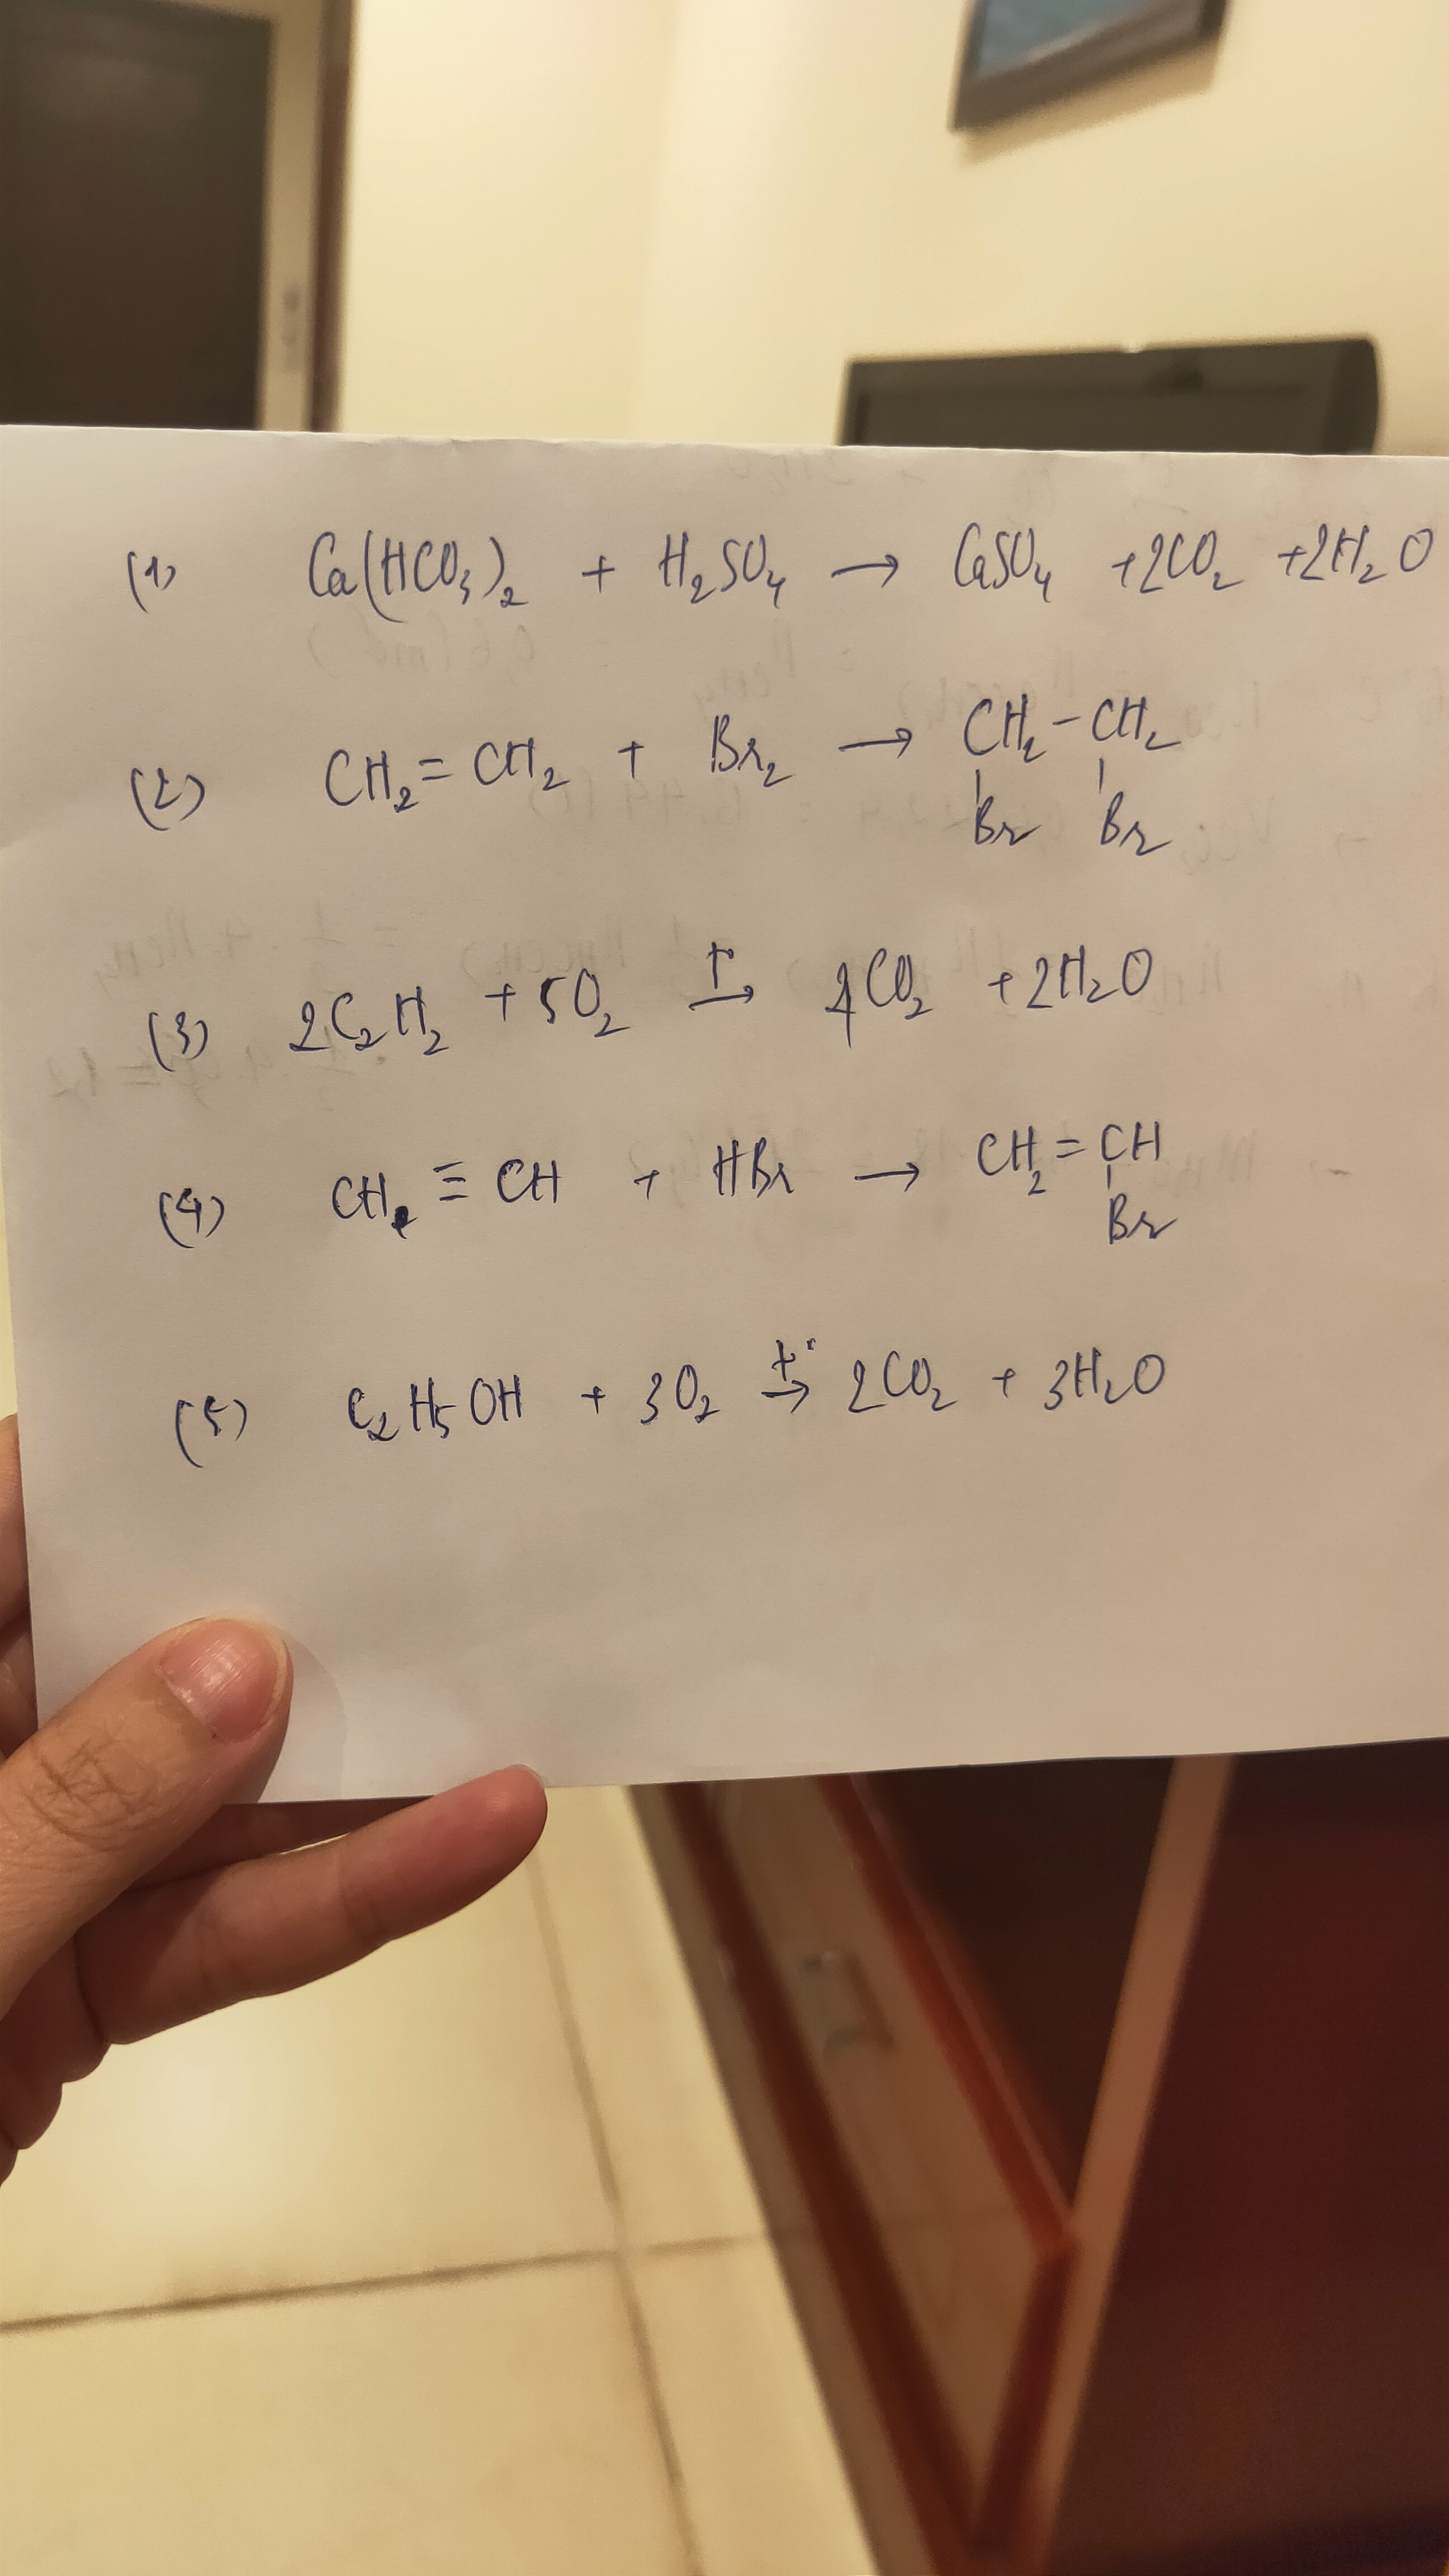 (1) Ca(HCO₃)₂ + H₂SO₄ → CaSO₄ + 2CO₂ + 2H₂O
(2) CH₂=CH₂ + Br₂ → CH₂-CH₂
Br Br
(3) 2C₂H₂ + 5O₂ t° → 4CO₂ + 2H₂O
(4) CH ≡ CH + HBr → CH₂=CH
Br
(5) C₂H₅OH + 3O₂ t° → 2CO₂ + 3H₂O